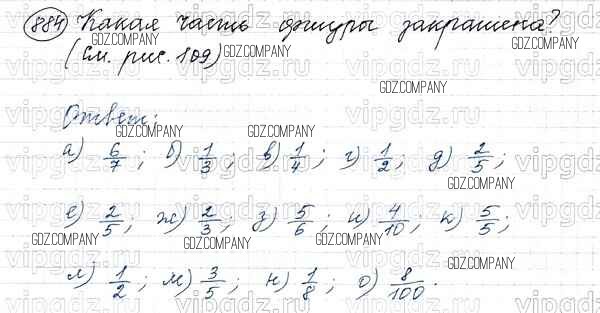 884 Какая часть фигуры закрашена?
(См. рис. 109)
Ответ:
а) 6/7 ; б) 1/3 ; в) 1/4 ; г) 1/2 ; д) 2/5 ;
е) 2/5 ; ж) 2/3 ; з) 5/6 ; и) 4/10 ; к) 5/5 ;
л) 1/2 ; м) 3/5 ; н) 1/8 ; о) 8/100 .
vipgdz.ru
GDZ.COMPANY